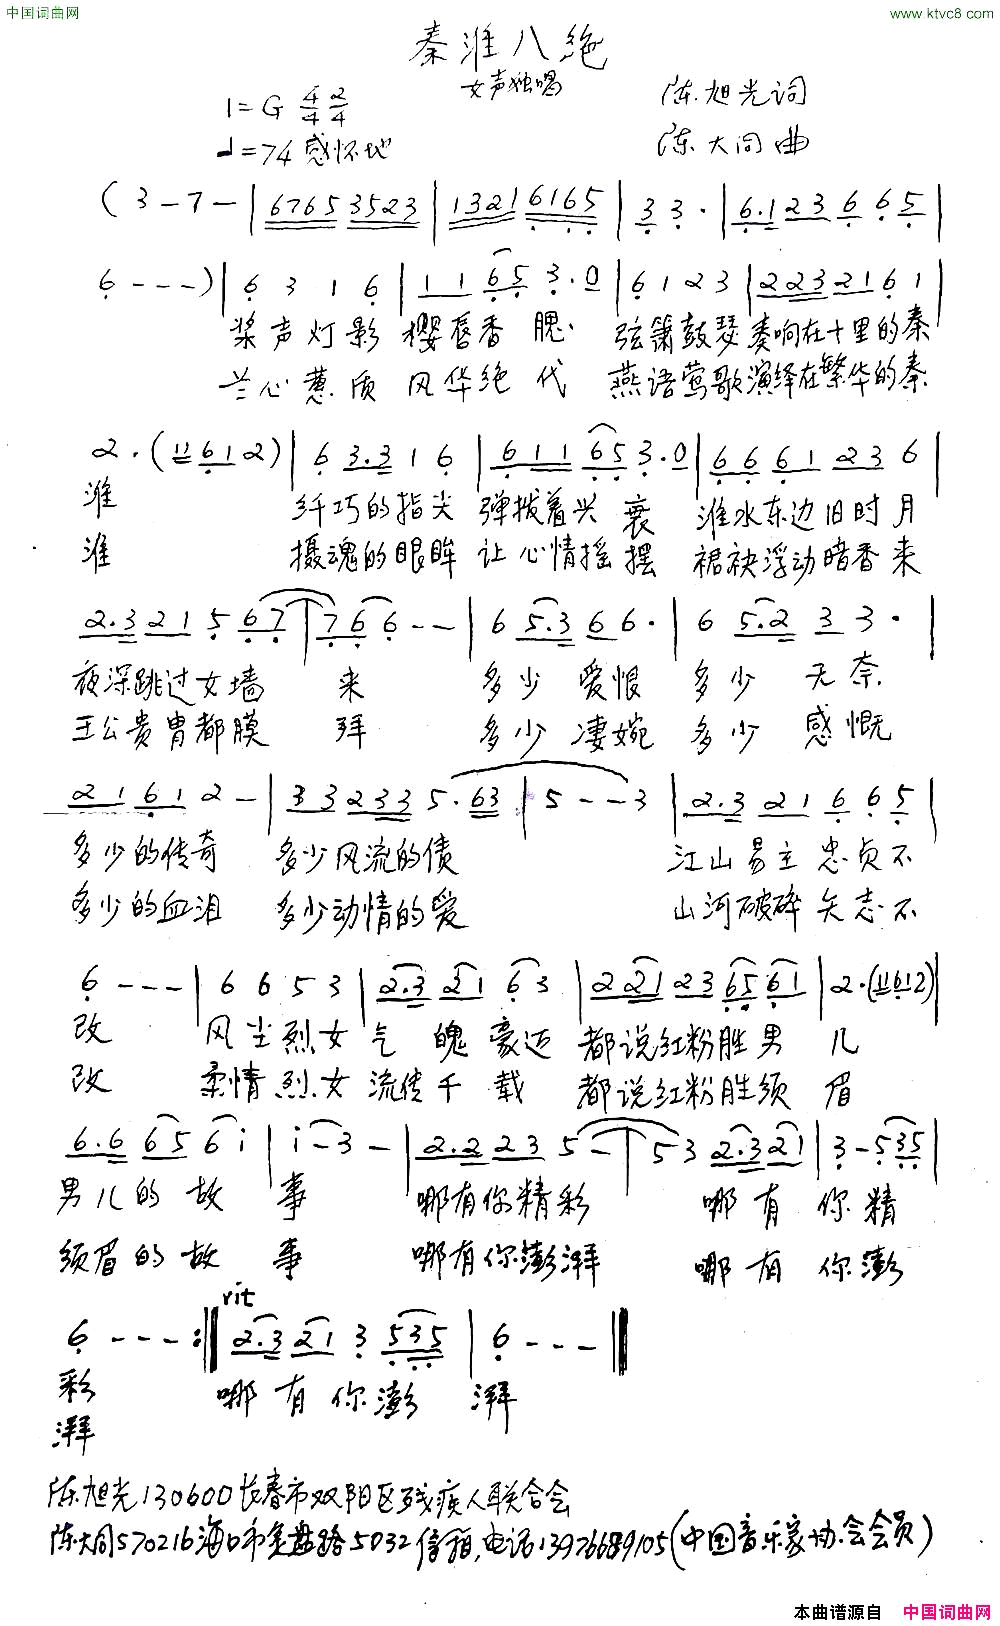 中国词曲网
www.ktvc8.com
秦淮八绝
女声独唱
1=G 4/4 2/4
陈旭光词
♩=74 感怀地
陈大同曲
(3-7-|6765 3523|1321 6165|3 3·|6·123 6 65|
6---)|6 3 1 6|1 1 65 3·0|6 1 2 3|223 21 6 1|
桨声灯影 樱唇香腮 弦箫鼓瑟奏响在十里的秦
兰心蕙质 风华绝代 燕语莺歌演绎在繁华的秦
2·(11612)|6 3·3 1 6|611 65 3·0|6 6 61 23 6|
淮 纤巧的指尖 弹拨着兴衰 淮水东边旧时月
淮 摄魂的眼眸 让心情摇摆 裙袂浮动暗香来
2·3 21 5 67|76 6--|6 5·3 6 6·|6 5·2 3 3·|
夜深跳过女墙 来 多少爱恨 多少 无奈
王公贵胄都膜 拜 多少凄婉 多少 感慨
21 61 2-|33 233 5·63|5--3|2·3 21 6 65|
多少的传奇 多少风流的债 江山易主忠贞不
多少的血泪 多少动情的爱 山河破碎矢志不
6---|6 6 5 3|2·3 21 6 3|221 23 65 61|2·(11612)|
改 风尘烈女气魄豪迈 都说红粉胜男 儿
改 柔情烈女流传千载 都说红粉胜须 眉
6·6 65 6 i|i-3-|2·2 23 5-|53 2·3 21|3-535|
男儿的故 事 哪有你精彩 哪有 你精
须眉的故 事 哪有你澎湃 哪有 你澎
rit
6---:‖2·3 21 3 535|6---‖
彩 哪有你澎 湃
湃
陈旭光130600长春市双阳区残疾人联合会
陈大同570216海口市金盘路5032信箱,电话13976689105(中国音乐家协会会员)
本曲谱源自 中国词曲网